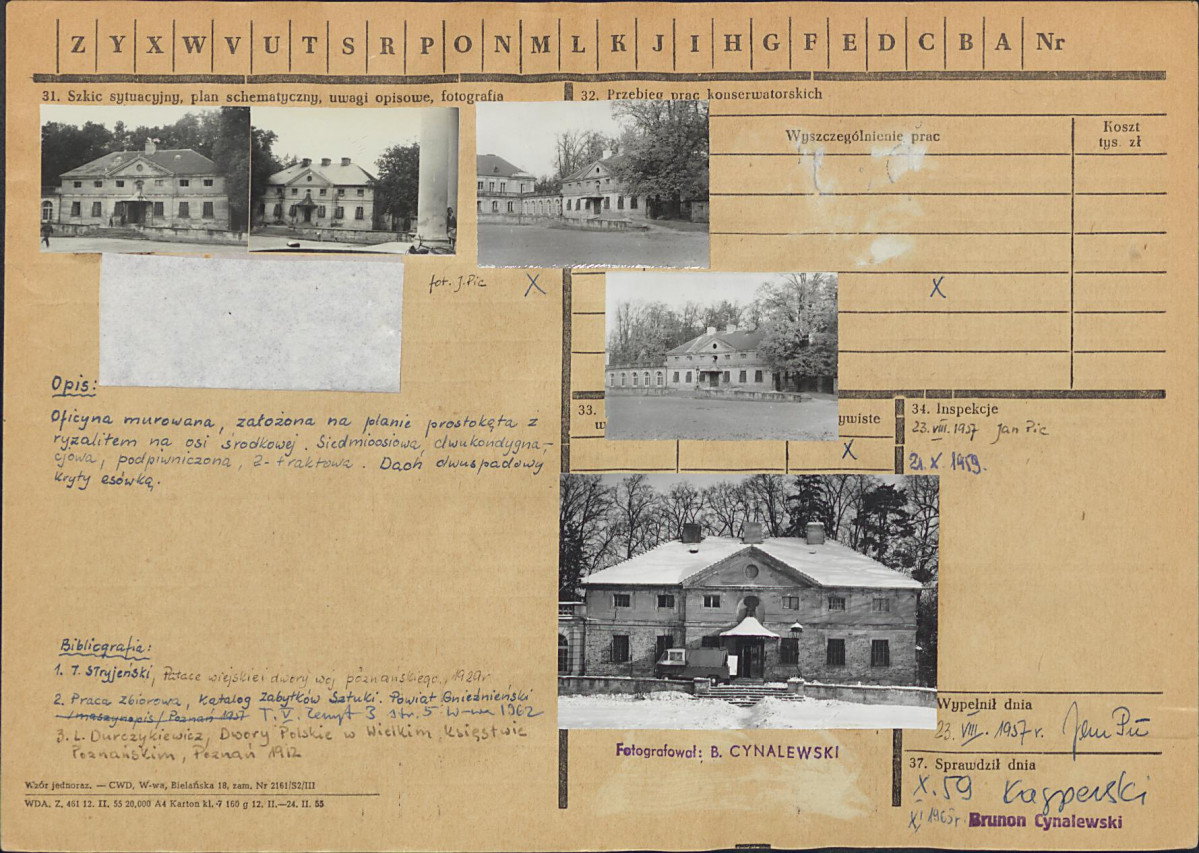 Z Y X W V U T S R P O N M L K J I H G F E D C B A Nr
31. Szkic sytuacyjny, plan schematyczny, uwagi opisowe, fotografia
fot. J. Pic X
Opis:
Oficyna murowana, założona na planie prostokąta z
ryzalitem na osi środkowej. Siedmioosiowa, dwukondygna-
cjowa, podpiwniczona, 2-traktowa. Dach dwuspadowy
kryty esówką.
Bibliografia:
1. T. Stryjeński, Pałace wiejskie i dwory woj. poznańskiego, 1929r
2. Praca zbiorowa, Katalog Zabytków Sztuki. Powiat Gnieźnieński
/maszynopis/ Poznań 1957 T. V. Zeszyt 3 str. 5 W-wa 1962
3. L. Durczykiewicz, Dwory Polskie w Wielkim Księstwie
Poznańskim, Poznań 1912
Wzór jednoraz. — CWD, W-wa, Bielańska 18, zam. Nr 2161/S2/III
WDA. Z. 461 12. II. 55 20,000 A4 Karton kl. 7 160 g 12. II.—24. II. 55
32. Przebieg prac konserwatorskich
Wyszczególnienie prac
Koszt
tys. zł
X
33.
w
ywiste
X
34. Inspekcje
23. VIII. 1957 Jan Pic
21. X. 1959.
Fotografował: B. CYNALEWSKI
Wypełnił dnia
23. VIII. 1957 r. Jan Pic
37. Sprawdził dnia
X. 59 Kasperski
XI 1965r. Brunon Cynalewski